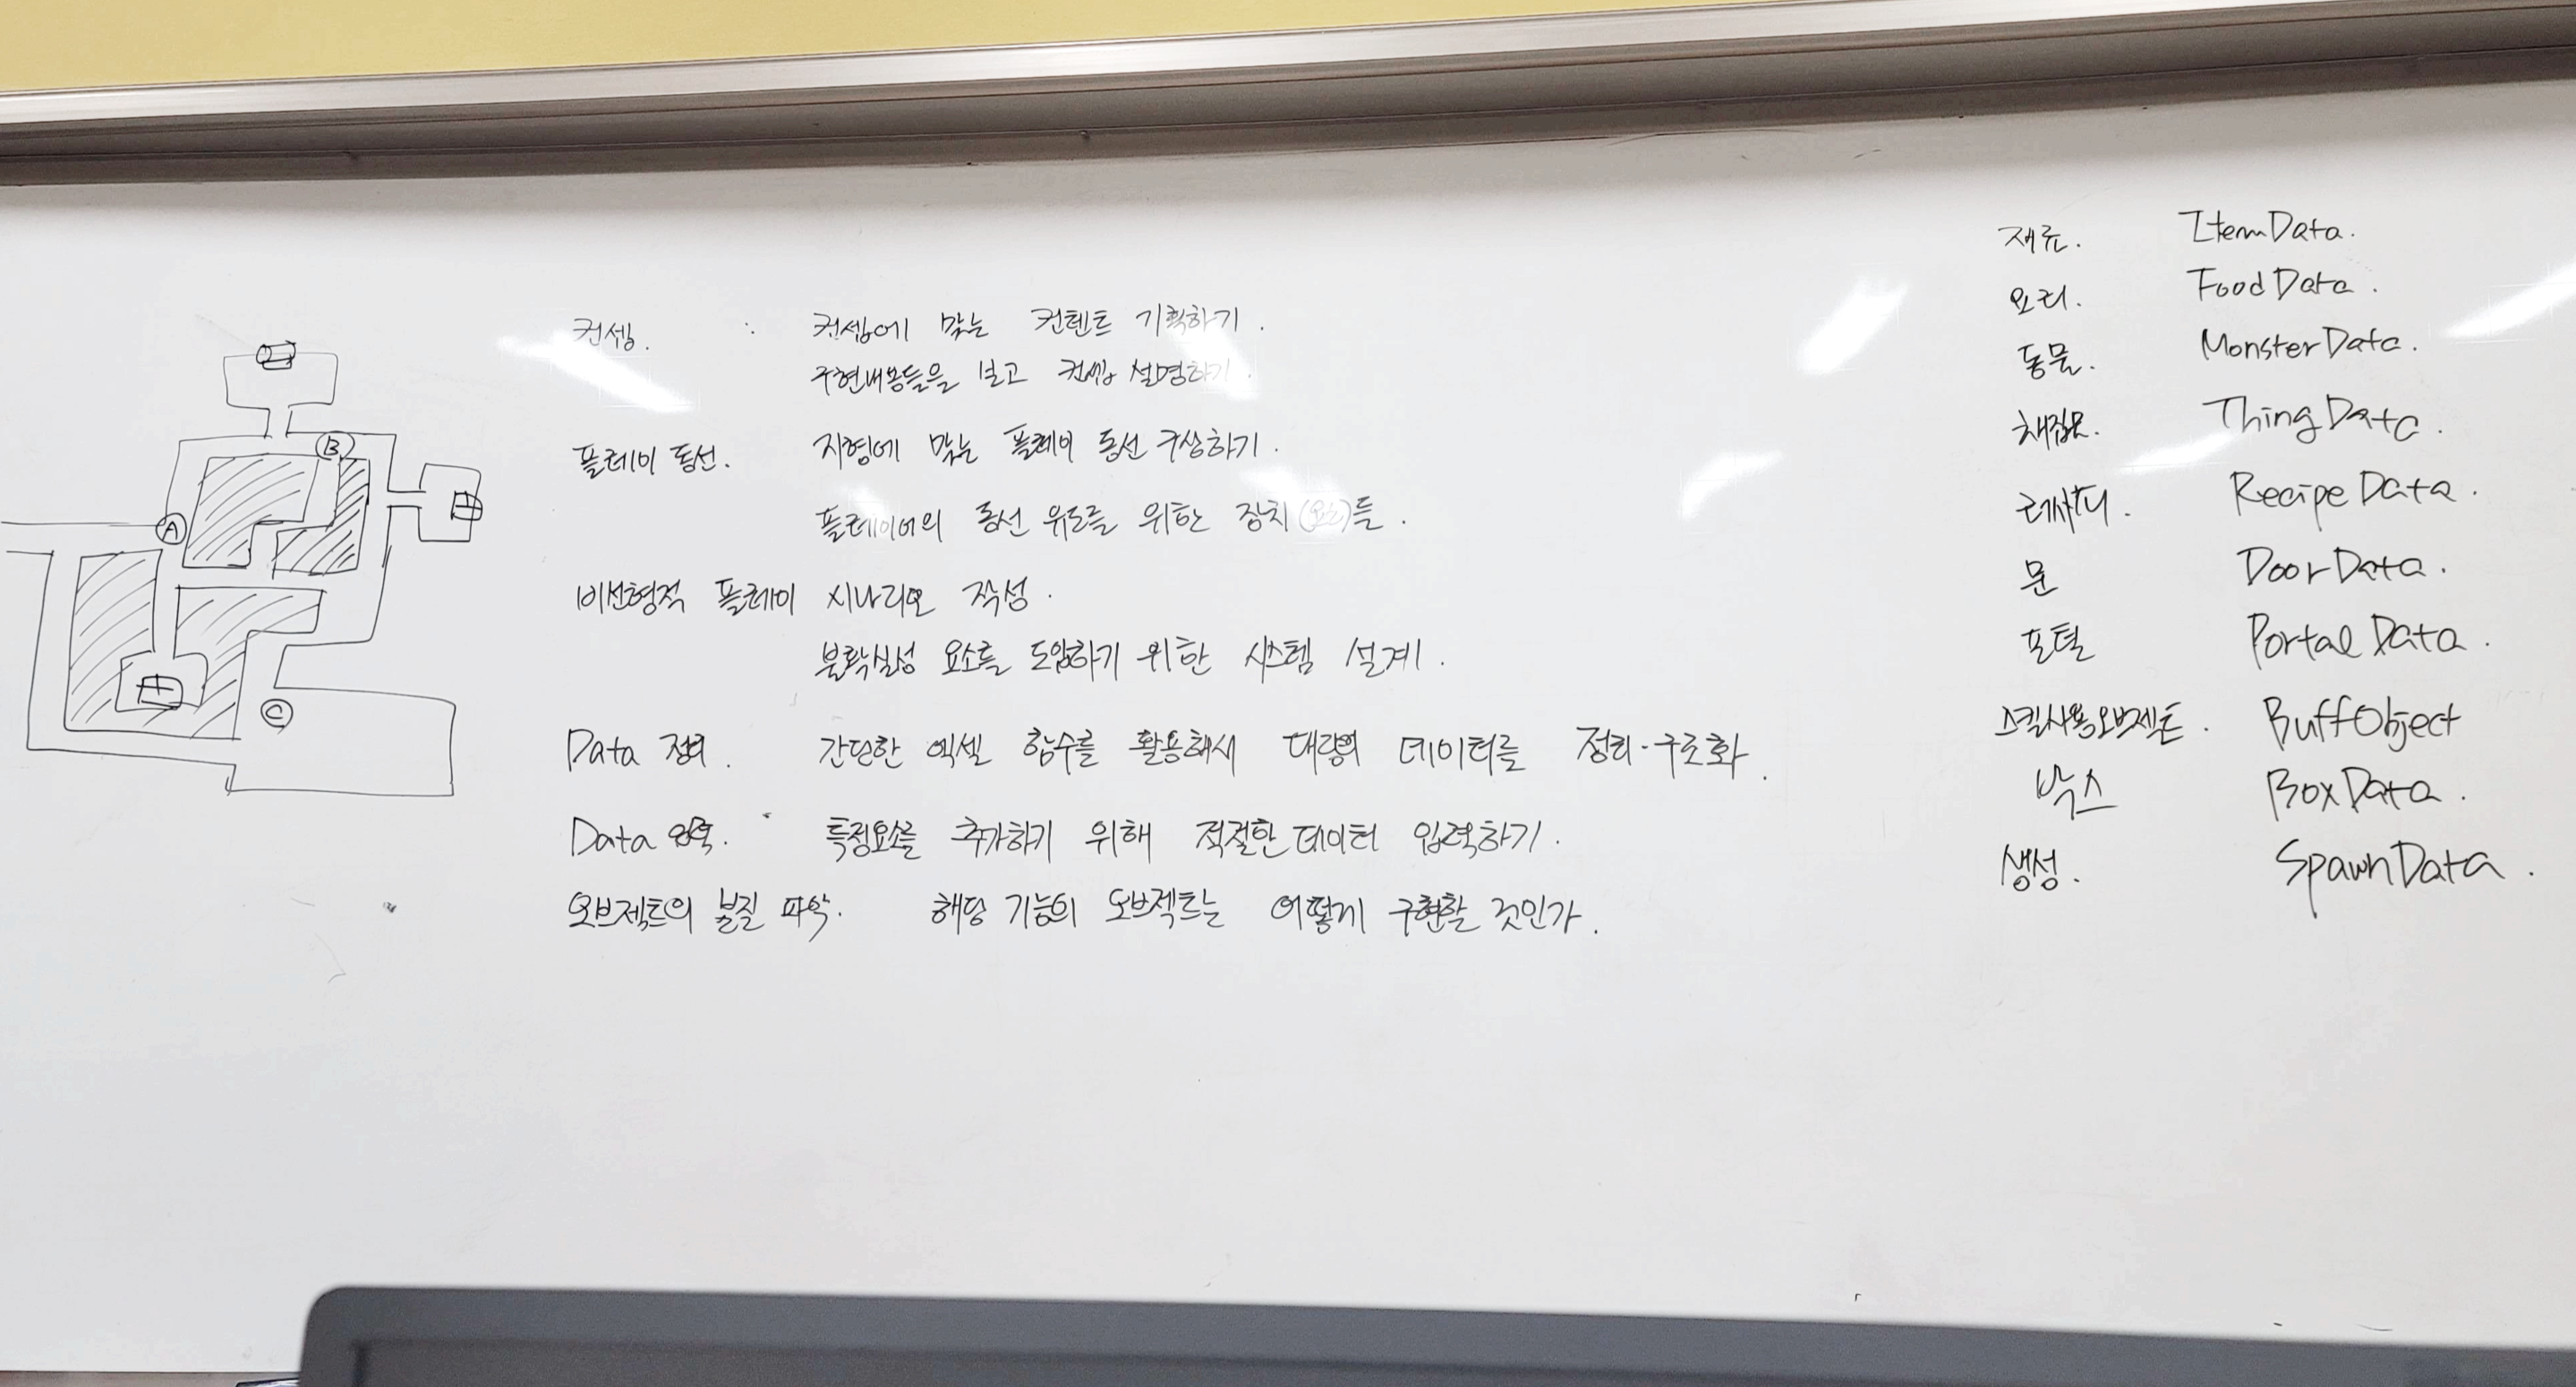 Ⓑ
Ⓐ
Ⓒ
컨셉. : 컨셉에 맞는 컨텐트 기획하기.
구현내용들을 보고 컨셉 설명하기.
플레이 동선. 지형에 맞는 플레이 동선 구상하기.
플레이어의 동선 유도를 위한 장치(요소)들.
비선형적 플레이 시나리오 작성.
불확실성 요소를 도입하기 위한 시스템 설계.
Data 정리. 간단한 엑셀 함수를 활용해서 대량의 데이터를 정리·구조화.
Data 입력. 특정요소를 추가하기 위해 적절한 데이터 입력하기.
오브젝트의 본질 파악. 해당 기능의 오브젝트는 어떻게 구현할 것인가.
재료. ItemData.
요리. FoodData.
동물. MonsterData.
채집물. ThingData.
레시피. RecipeData.
문 DoorData.
포털 PortalData.
스킬사용오브젝트. BuffObject
박스 BoxData.
생성. SpawnData.